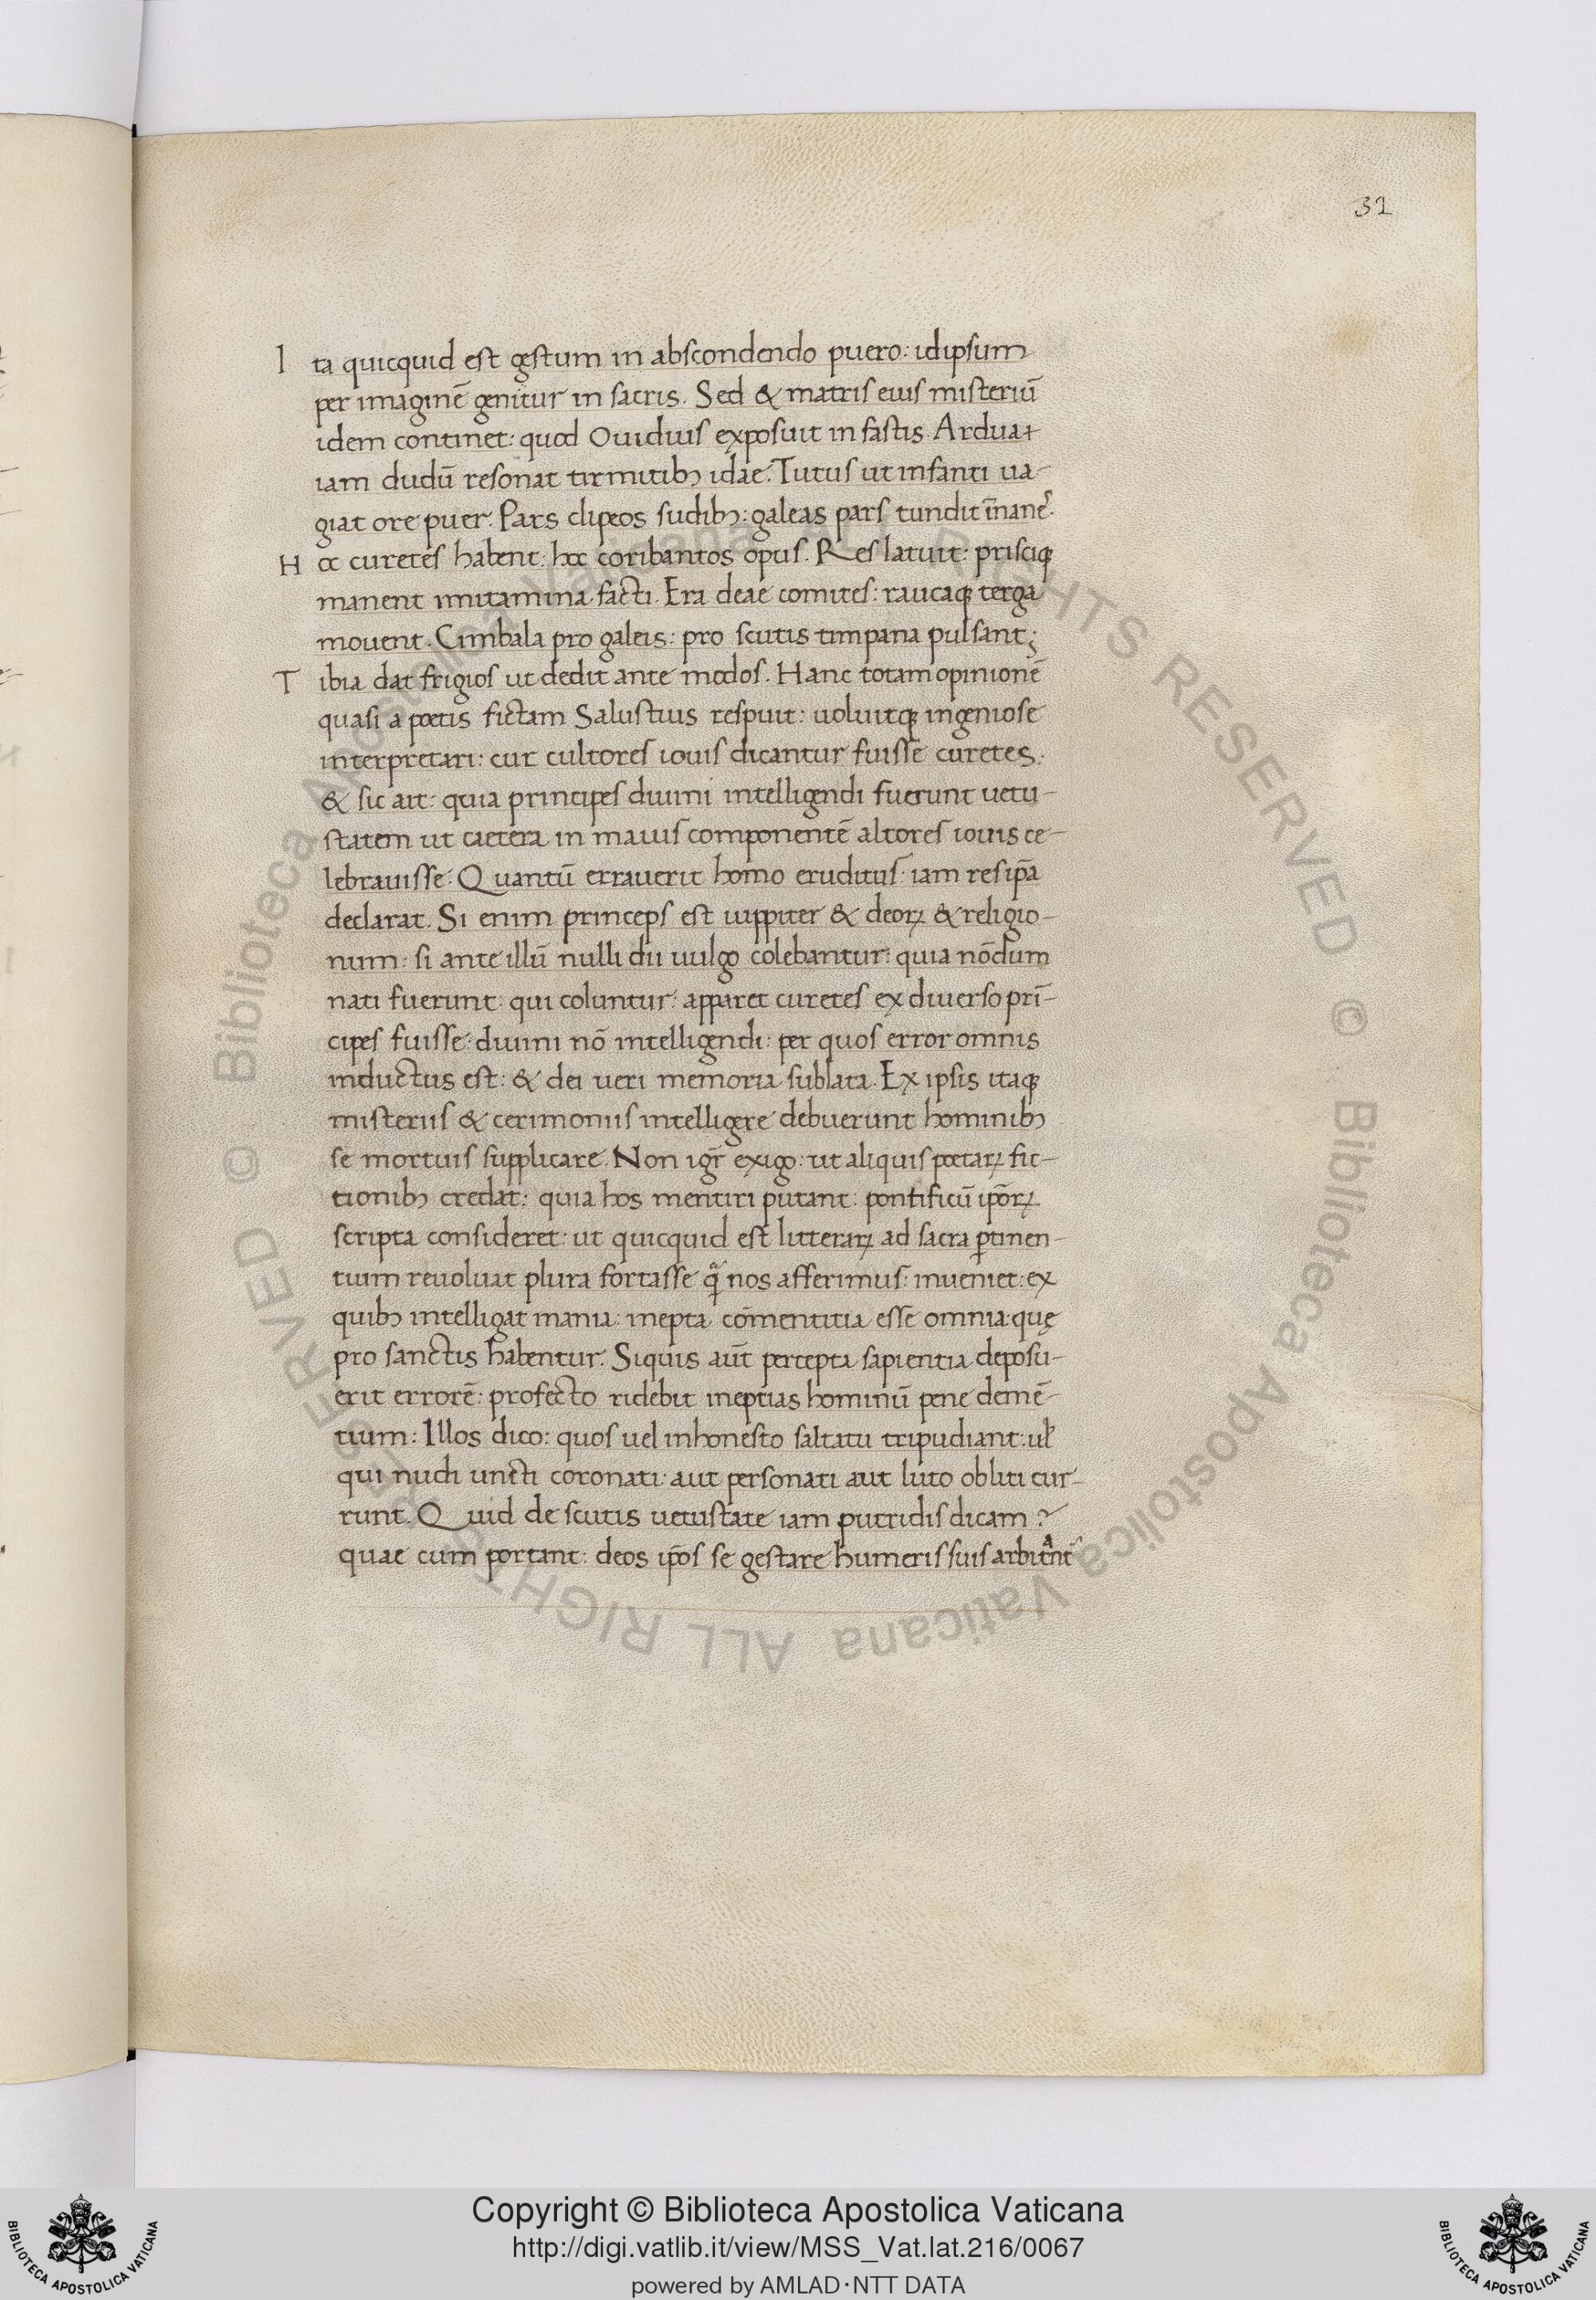 31
Ita quicquid est gestum in abscondendo puero: idipsum
per imaginē genitur in sacris. Sed & matris eius misteriū
idem continet: quod Ouidius exposuit in fastis. Ardua
iam dudū resonat tirmitibꝫ idae. Tutus ut infanti ua-
giat ore puer. Pars clipeos sudibꝫ: galeas pars tundit īnanes.
Hoc curetes habent: hoc coribantos opus. Res latuit: prisciqꝫ
manent imitamina facti. Era deae comites: raucaqꝫ terga
mouent. Cimbala pro galeis: pro scutis timpana pulsant;
Tibia dat frigios ut dedit ante modos. Hanc totam opinionē
quasi a poetis fictam Salustius respuit: uoluitqꝫ ingeniose
interpretari: cur cultores iouis dicantur fuisse curetes:
& sic ait: quia principes diuini intelligendi fuerunt uetu-
statem ut caetera in maius componentē altores iouis ce-
lebrauisse: Quantū errauerit homo eruditus: iam res ip̄a
declarat. Si enim princeps est iuppiter & deoꝝ & religio-
num: si ante illū nulli dii uulgo colebantur: quia nōdum
nati fuerunt: qui coluntur: apparet curetes ex diuerso prī-
cipes fuisse: diuini nō intelligendi: per quos error omnis
inductus est: & dei ueri memoria sublata. Ex ipsis itaqꝫ
misteriis & cerimoniis intelligere debuerunt hominibꝫ
se mortuis supplicare. Non igr̄ exigo: ut aliquis poetaꝝ fic-
tionibꝫ credat: quia hos mentiri putant: pontificū ip̄oꝝ
scripta consideret: ut quicquid est litteraꝝ ad sacra ꝑtinen-
tium reuoluat plura fortasse q̄ nos afferimus: inueniet: ex
quibꝫ intelligat mania: inepta cōmentitia esse omnia: quę
pro sanctis habentur. Siquis aūt percepta sapientia deposu-
erit errorē: profecto ridebit ineptias hominū pene demē-
tium: Illos dico: quos uel inhonesto saltatu tripudiant: uł
qui nudi uncti coronati: aut personati aut luto obliti cur-
runt. Quid de scutis uetustate iam putridis dicam?
quae cum portant: deos ip̄os se gestare humeris suis arbitrant̄
© Biblioteca Apostolica Vaticana ALL RIGHTS RESERVED
© Biblioteca Apostolica Vaticana ALL RIGHTS RESERVED
Copyright © Biblioteca Apostolica Vaticana
http://digi.vatlib.it/view/MSS_Vat.lat.216/0067
powered by AMLAD·NTT DATA
BIBLIOTECA APOSTOLICA VATICANA
BIBLIOTECA APOSTOLICA VATICANA